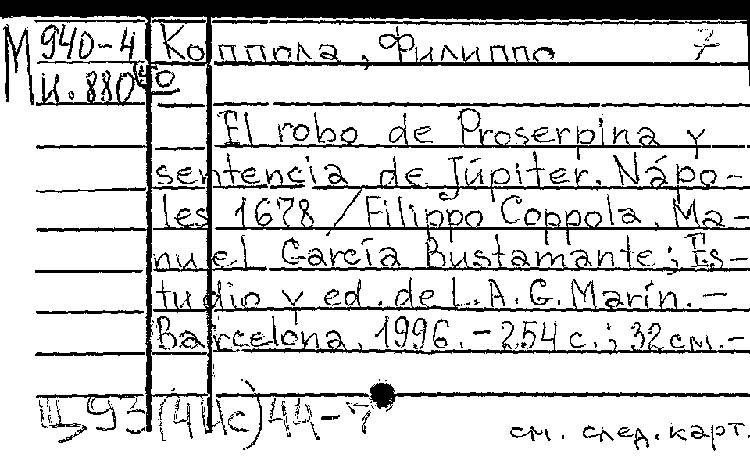 М 940-4 Коппола, Филиппо 7
К. 880
El robo de Proserpina y
sentencia de Júpiter. Nápo-
les 1678 / Filippo Coppola, Ma-
nuel García Bustamante; Es-
tudio y ed. de L.A.G. Marín. -
Barcelona, 1996. - 254 с.; 32 см. -
Щ93(4Ис)44-7
см. след. карт.